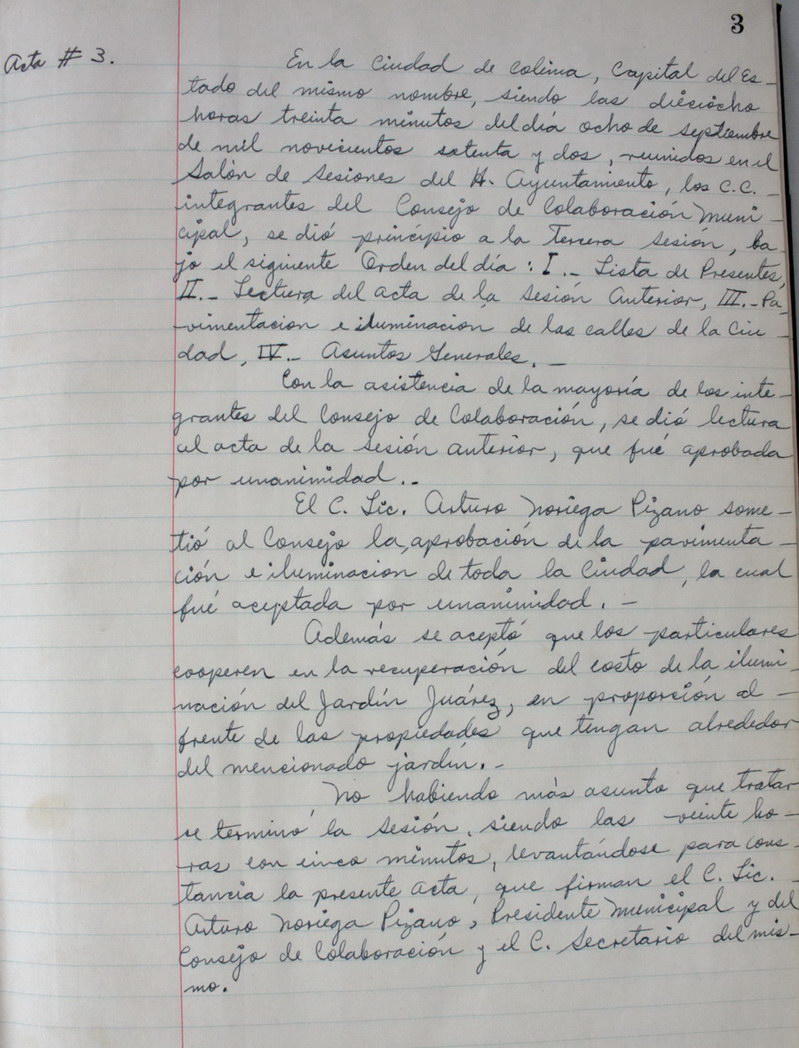 3
Acta # 3.
En la Ciudad de Colima, Capital del Es-
tado del mismo nombre, siendo las dieciocho
horas treinta minutos del día ocho de septiembre
de mil novecientos setenta y dos, reunidos en el
Salón de Sesiones del H. Ayuntamiento, los C.C. -
integrantes del Consejo de Colaboración Muni-
cipal, se dió principio a la Tercera Sesión, ba-
jo el siguiente Orden del día: I.- Lista de Presentes,
II.- Lectura del acta de la Sesión Anterior, III.- Pa-
vimentacion e iluminacion de las calles de la Ciu-
dad, IV.- Asuntos Generales. -
Con la asistencia de la mayoría de los inte-
grantes del Consejo de Colaboración, se dió lectura
al acta de la sesión anterior, que fué aprobada
por unanimidad. -
El C. Lic. Arturo Noriega Pizano some-
tió al Consejo la, aprobación de la pavimenta-
ción e iluminacion de toda la Ciudad, la cual
fué aceptada por unanimidad. -
Además se aceptó que los particulares
cooperen en la recuperación del costo de la ilumi-
nación del Jardín Juárez, en proporción al -
frente de las propiedades que tengan alrededor
del mencionado jardín. -
No habiendo más asunto que tratar
se terminó la Sesión, siendo las veinte ho-
ras con cinco minutos, levantándose para cons-
tancia la presente acta, que firman el C. Lic. -
Arturo Noriega Pizano, Presidente Municipal y del
Consejo de Colaboración y el C. Secretario del mis-
mo.